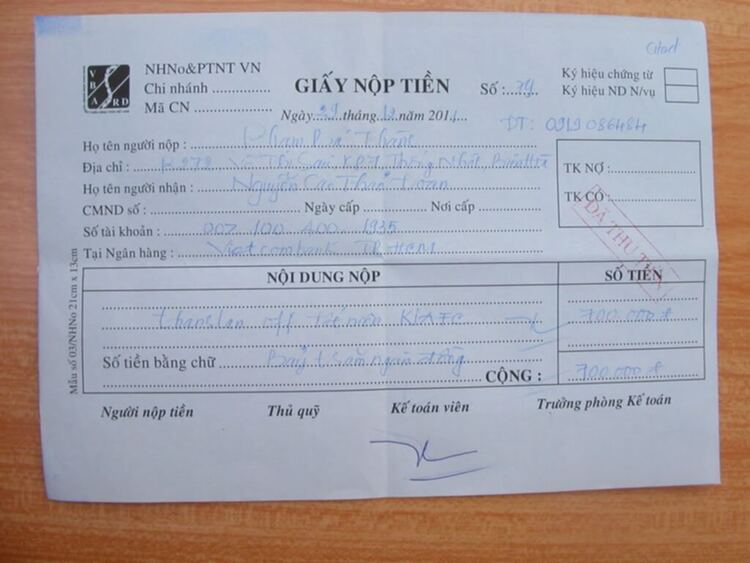 NHNo&PTNT VN
Chi nhánh
Mã CN
VBARD
GIẤY NỘP TIỀN
Số:
Ký hiệu chứng từ
Ký hiệu ND N/vụ
Ngày 29 tháng 12 năm 2011
ĐT: 0919 086484
Họ tên người nộp :
Địa chỉ : K272 Võ Thị Sáu KP7, Thống Nhất,
Họ tên người nhận : Nguyễn Cao
CMND số : Ngày cấp Nơi cấp
Số tài khoản : 007 100 400 1935
Tại Ngân hàng : Vietcombank TP HCM
TK NỢ :
TK CÓ :
ĐÃ THU TIỀN
Mẫu số 03/NHNo 21cm x 13cm
NỘI DUNG NỘP
SỐ TIỀN
off
700.000 đ
Số tiền bằng chữ Bảy trăm ngàn đồng
CỘNG : 700.000 đ
Người nộp tiền
Thủ quỹ
Kế toán viên
Trưởng phòng Kế toán